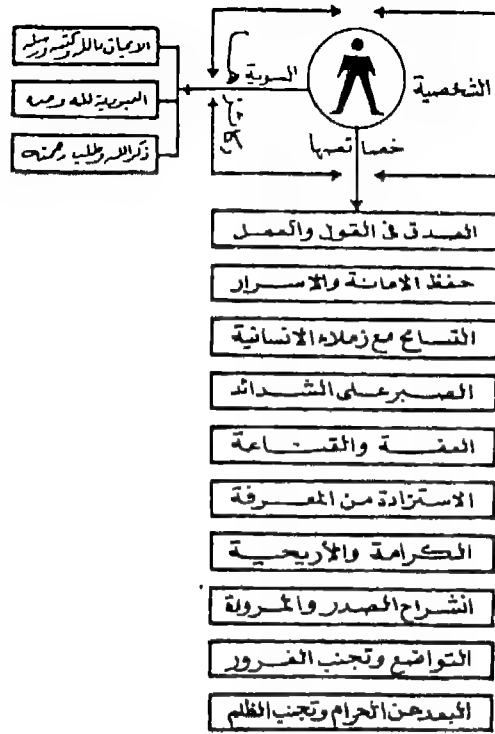 الشخصية
السوية
خصائصها
الايمان بالله وكتبه ورسله
العبودية لله وحده
ذكر الله وطلب رحمته
الصدق فى القول والعمل
حفظ الامانة والاسرار
التسامح مع زملاء الانسانية
الصبر على الشدائد
العفة والقناعة
الاستزادة من المعرفة
الكرامة والأريحية
انشراح الصدر والمرونة
التواضع وتجنب الغرور
البعد عن الحرام وتجنب الظلم